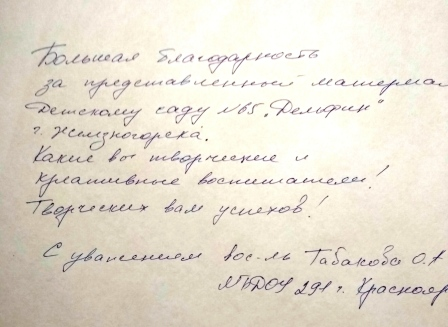 Большая благодарность
за представленный материал
Детскому саду №65 „Дельфин“
г. Железногорска.
Какие вы творческие и
креативные воспитатели!
Творческих вам успехов!
С уважением вос-ль Табакова О.А
МБДОУ 291 г. Краснояр